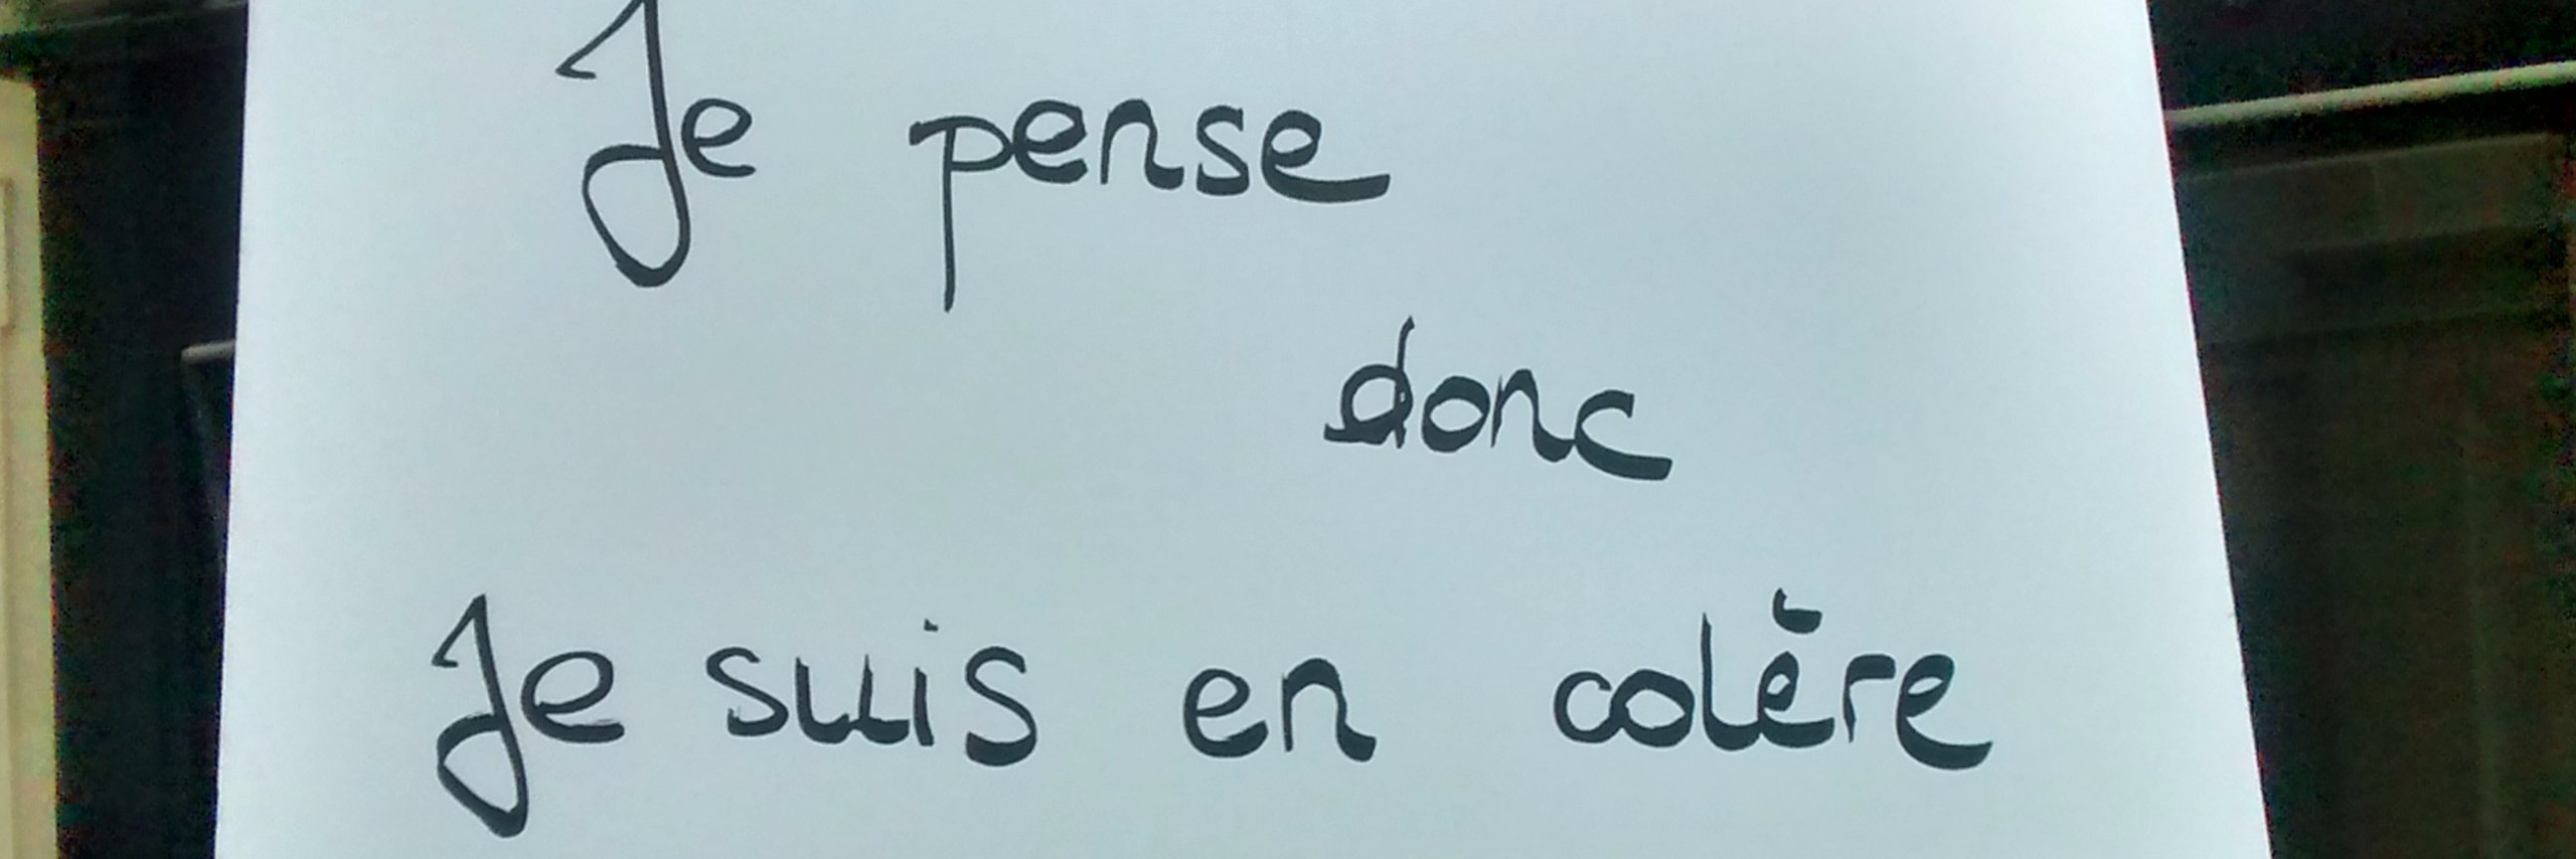 Je pense
donc
Je suis en colère